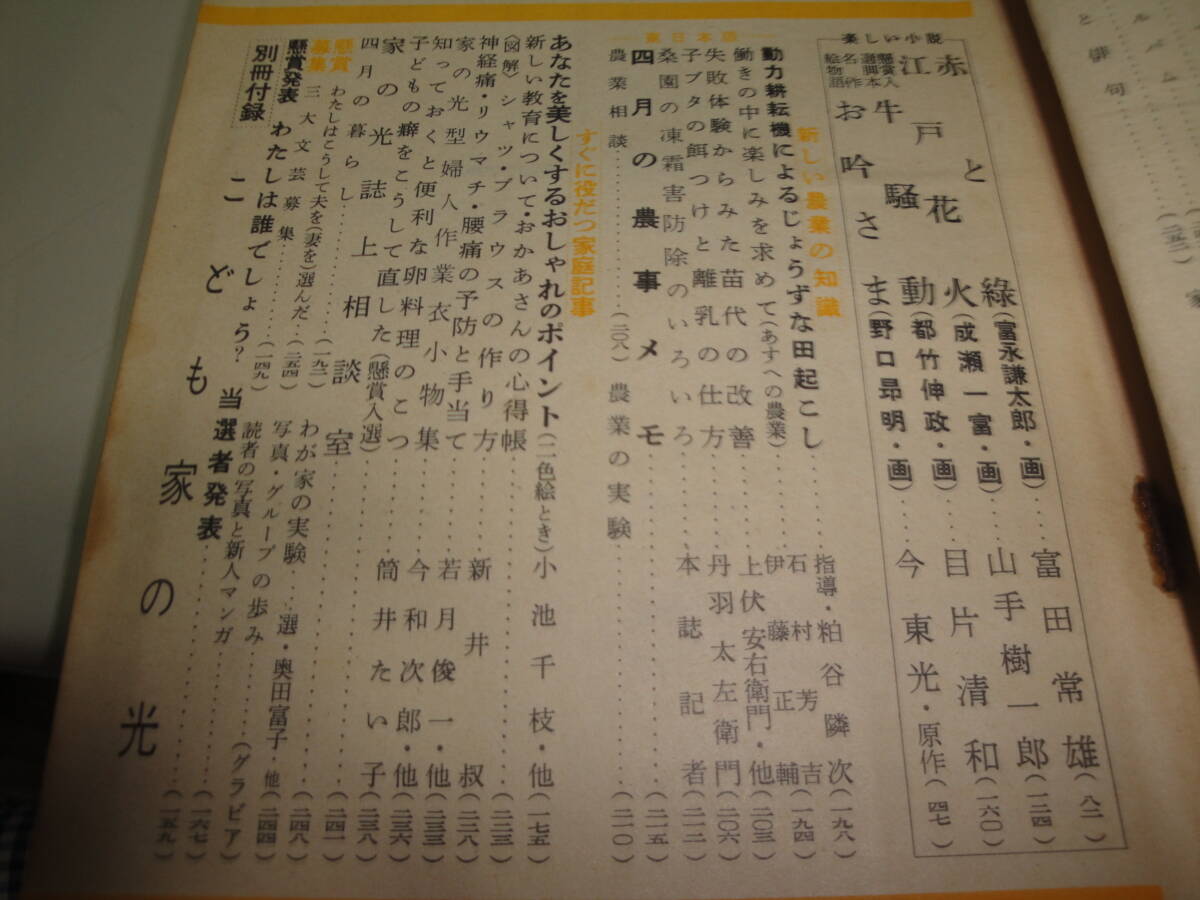 楽しい小説
赤と緑(富永謙太郎・画)‥‥富田常雄(八二)
江戸花火(成瀬一富・画)‥‥山手樹一郎(一二四)
懸賞入選脚本 牛騒動(都竹伸政・画)‥‥目片清和(一六〇)
名作絵物語 お吟さま(野口昻明・画)‥‥今東光・原作(四七)
新しい農業の知識
動力耕耘機によるじょうずな田起こし‥‥指導・粕谷隣次(一九八)
働きの中に楽しみを求めて(あすへの農業)‥‥石村芳吉(一九四)
失敗体験からみた苗代の改善‥‥伊藤正輔
子ブタの餌つけと離乳の仕方‥‥上伏安右衛門・他(二〇三)
桑園の凍霜害防除のいろいろ‥‥丹羽太左衛門(二〇六)
東日本版
四月の農事メモ‥‥本誌記者(二一二)
‥‥(二一五)
農業相談‥‥(二〇八)
農業の実験‥‥(二一〇)
すぐに役だつ家庭記事
あなたを美しくするおしゃれのポイント(二色絵とき)小池千枝・他(一七五)
新しい教育について・おかあさんの心得帳‥‥(二二三)
(図解)シャツ・ブラウスの作り方‥‥新井叔(二二八)
神経痛・リウマチ・腰痛の予防と手当て‥‥若月俊一・他(二三三)
家の光型婦人作業衣小物集‥‥今和次郎・他(二三六)
知っておくと便利な卵料理のこつ‥‥筒井たい子(二三八)
子どもの癖をこうして直した(懸賞入選)‥‥(二四一)
家の光誌上相談室‥‥(二四八)
四月の暮らし‥‥(一九二)
わが家の実験‥‥選・奥田富子・他(二四四)
懸賞募集
わたしはこうして夫を(妻を)選んだ‥‥(二五四)
三大文芸募集‥‥(一四九)
写真・グループの歩み‥‥
読者の写真と新人マンガ‥‥(グラビア)
懸賞発表 わたしは誰でしょう? 当選者発表‥‥(一六七)
別冊付録 こども家の光‥‥(一五九)
俳句